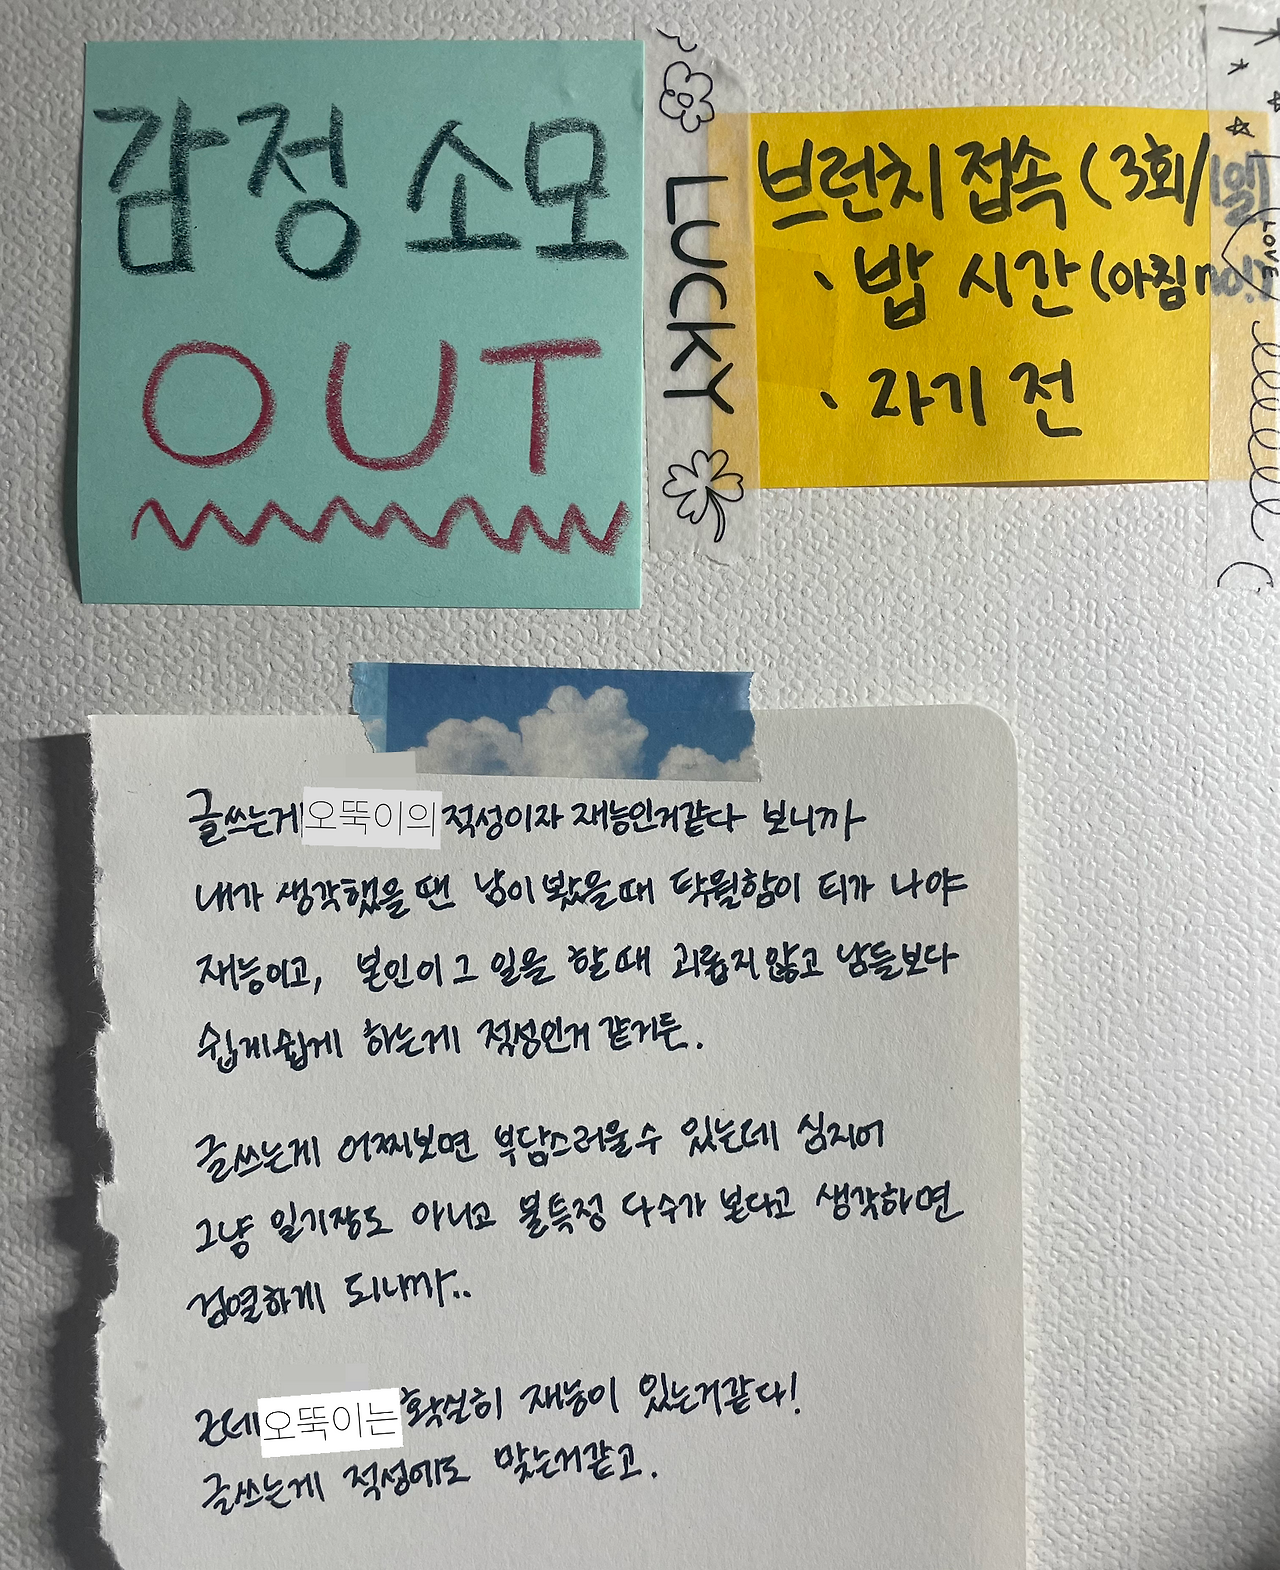 감정 소모
OUT
LUCKY
브런치 접속 (3회/1일)
· 밥 시간 (아침no!)
· 자기 전
LOVE
글쓰는게 오뚝이의 적성이자 재능인거같다 보니까
내가 생각했을 땐 남이 봤을때 탁월함이 티가 나야
재능이고, 본인이 그 일을 할 때 괴롭지 않고 남들보다
쉽게쉽게 하는게 적성인거 같거든.
글쓰는게 어찌보면 부담스러울수 있는데 심지어
그냥 일기장도 아니고 불특정 다수가 본다고 생각하면
검열하게 되니까..
근데 오뚝이는 확실히 재능이 있는거같다!
글쓰는게 적성에도 맞는거같고.